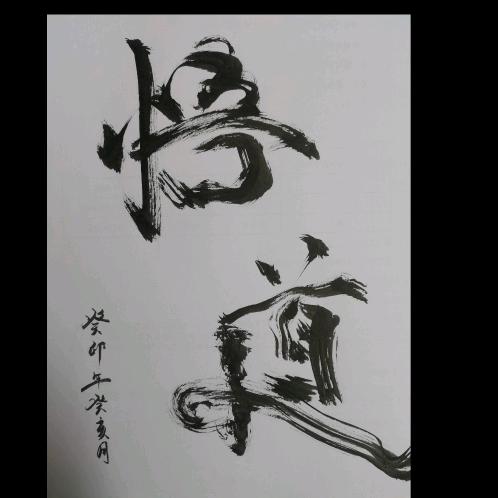 悟道
癸卯年癸亥月